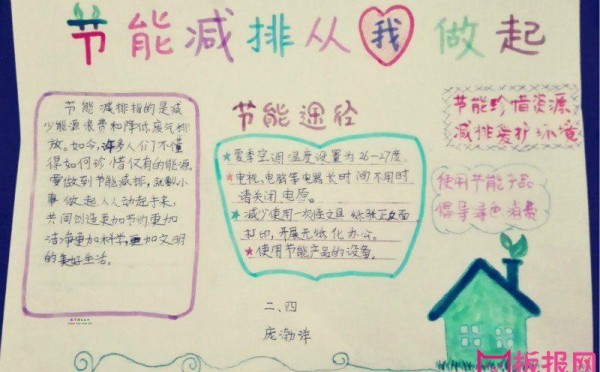 节能减排从我做起
节能减排指的是减
少能源浪费和降低废气排
放。如今,许多人们不懂
得如何珍惜仅有的能源。
要做到节能减排,就从小
事做起人人动起来,
共同创造更加节约更加
洁净更加科学,更加文明
的美好生活。
节能途径
★夏季空调温度设置为26-27度。
★电视、电脑等电器长时间不用时
请关闭电原。
★减少使用一次性文具 纸张正反面
打印,开展无纸化办公。
★使用节能产品的设备。
二、四
庞渤洋
节能珍惜资源
减排爱护环境
使用节能产品
倡导绿色消费
板报网